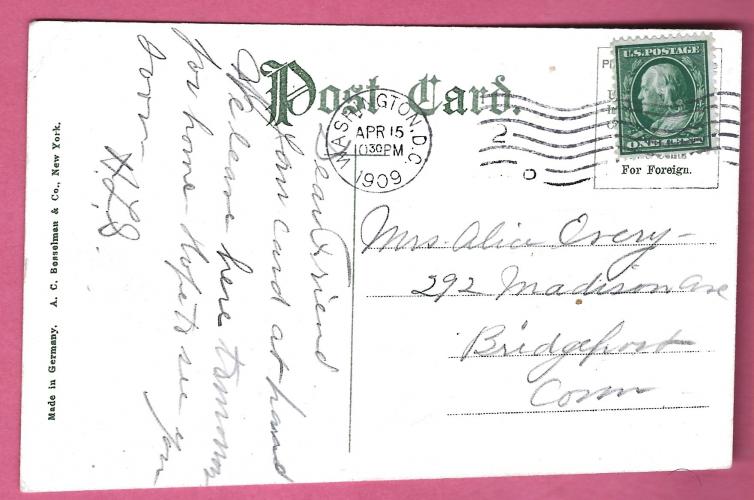 Post Card.
WASHINGTON, D.C.
APR 15
10 30 PM
1909
2
U.S. POSTAGE
ONE CENT
For Foreign.
Dear Friend
Your card at hand
We leave here tomorrow
for home Hope to see you
soon
Mrs. Alice Overy
292 Madison Ave
Bridgeport
Conn
Made in Germany. A. C. Bosselman & Co., New York.